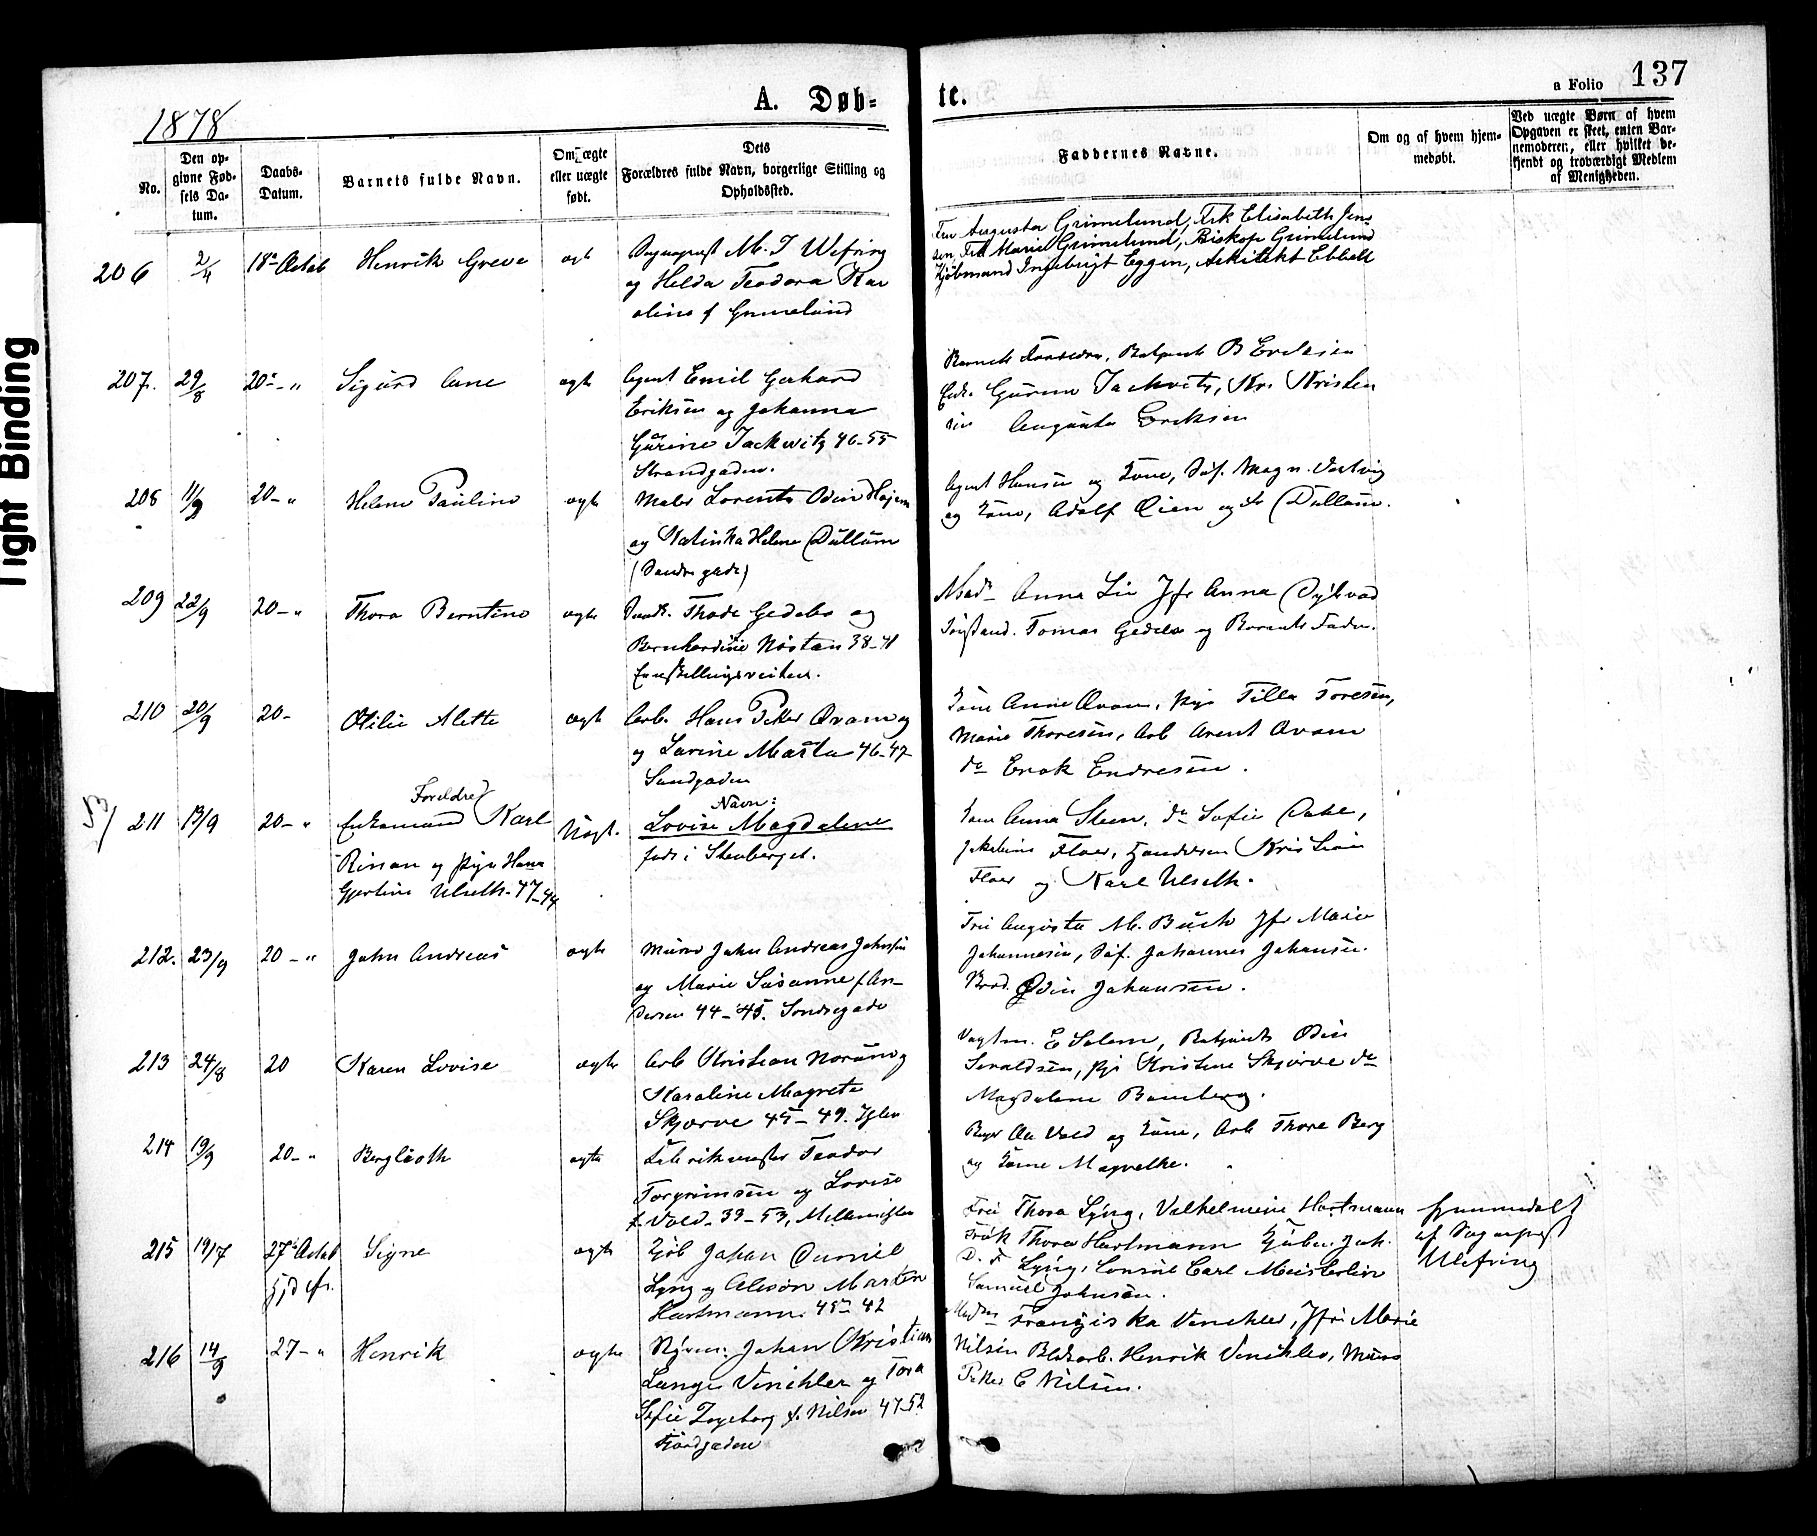 1878
A. Døb-
te.
a Folio 137
No.
Den op-
givne Fød-
sels Da-
tum.
Daabs-
Datum.
Barnets fulde Navn.
Om ægte
eller uægte
født.
Dets
Forældres fulde Navn, borgerlige Stilling og
Opholdssted.
Faddernes Navne.
Om og af hvem hjem-
medøbt.
Ved uægte Børn af hvem
Opgaven er skeet, enten Bar-
nemoderen, eller hvilket be-
kjendt og troværdigt Medlem
af Menigheden.
206 2/4 18de Octob Henrik Greve ægt Sognepræst M. J Wefring
og Helda Teodora Kar
oline f Grimelund
Fru Augusta Grimelund, Frk Elisabeth Jen-
sen, Frk Marie Grimelund, Biskop Grimelund
Kjøbmand Ingebrigt Eggen, Arkitekt Ebbell
207. 29/8 20de - " Sigurd Arne ægte Agent Emil Gerhard
Eriksen og Johanna
Gurine Jackwitz 46-55
Strandgaden.
Barnets Forældre, B Eriksen
Enke Gurine Jackwitz, Kristen
sen Augusta Eriksen
208 11/9 20- " Helene Pauline ægte Maler Lorents Odin Hojem
og Katinka Helene Dullum
(Søndre gade)
Agent Hansen og Kone, Søf. Magn. Vestvig
og Kone, Adolf Øien og Dullum.
209 22/9 20- " Thora Berntine ægte Thode Gedebo og
Bernhardine Nøstan 38-41
Enskillingsveiten.
Mad Anna Lie Jfr Anna Dybvad
Tomas Gedebo og Barnets Fader.
210 20/9 20- Otilie Alette ægte Arb. Hans Peter Qvam og
og Lavine Marta 46-47
Sandgaden
Kone Anne Qvam, Pige Tilla Toresen,
Marie Thoresen, Arb Arent Qvam
do Erik Endresen.
53/ 211 13/9 20- " Forældre
Enkemand Karl
Rinan og Pige Hana
Gjertine Ulseth. 47-44
Uægt. Navn:
Lovise Magdalene
født i Stenberget.
Kone Anna Steen, do Sofie Dahl,
Jakobine Floer, Kristian
Floer og Karl Ulseth.
212. 23/9 20- " John Andreas ægte Murer John Andreas Johnsen
og Marie Susanne f An-
dersen 44-45. Sondregade
Fru Augusta M. Buch Jfr Marie
Johannesen, Søf. Johannes Johansen.
Brød. Odin Johansen.
213 24/8 20 Karen Lovise ægte Arb Kristian Norum og
Karoline Magrete
Skjærve 45-49. Ihlen
Vagtm. E Solem, Odin
Seraldsen, Pige Kristine Skjærve do
Magdalene Bamberg.
214 19/9 20- " Berglioth ægte Fabrikmester Teodor
Torgrimsen og Lovise
f. Vold. 39-53, Mellemihlen
Aa Vold og Kone, Arb Thore Berg
og Kone Magrethe.
215 19/7 27de Octob Signe ægte Kjøb Johan Daniel
Lyng og Marten
Hartmann. 45-42
Fru Thora Lyng, Vilhelmine Hartmann
Frøk Thora Hartmann Kjøbm. Joh.
D. F Lyng, Consul Carl Meisterlin
Samuel Johnsen.
hjemmedøbt
af Sognepræst
Wefring
216 14/9 27- " Henrik ægte Johan Kristian
Lange Vinihler og Tora
Sofie Ingeborg f. Nilsen 47-52
Fjordgaden
Frangiska Vinihler, Jfr Marie
Nilsen Henrik Vinihler, Murer
Peter C Nilsen.
Tight Binding